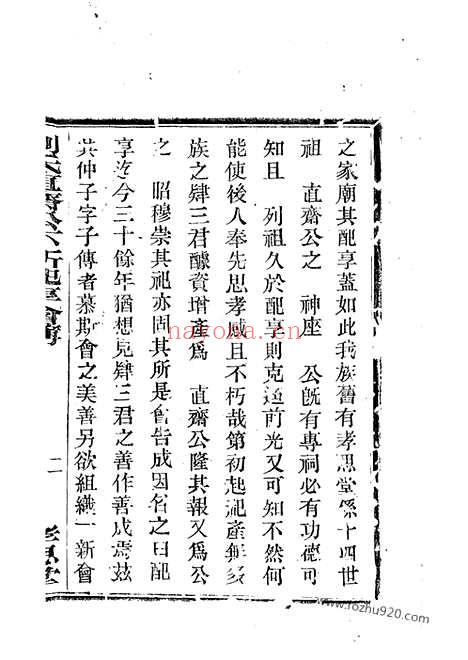 之家廟其配享蓋如此我族舊有孝思堂係十四世
祖 直齋公之 神座 公既有專祠必有功德可
知且 列祖久於配享則克迪前光又可知不然何
能使後人奉先思孝咸且不朽哉第初起祀產無多
族之肆三君醵資增產為 直齋公隆其報又為公
之 昭穆崇其祀亦固其所是會告成因名之曰配
享迄今三十餘年猶想見肆三君之善作善成焉茲
其仲子字子傳者慕斯會之美善另欲組織一新會
劉氏直齋公 新配享會
二
孝思堂
nayona.cn
www.fozhu920.com